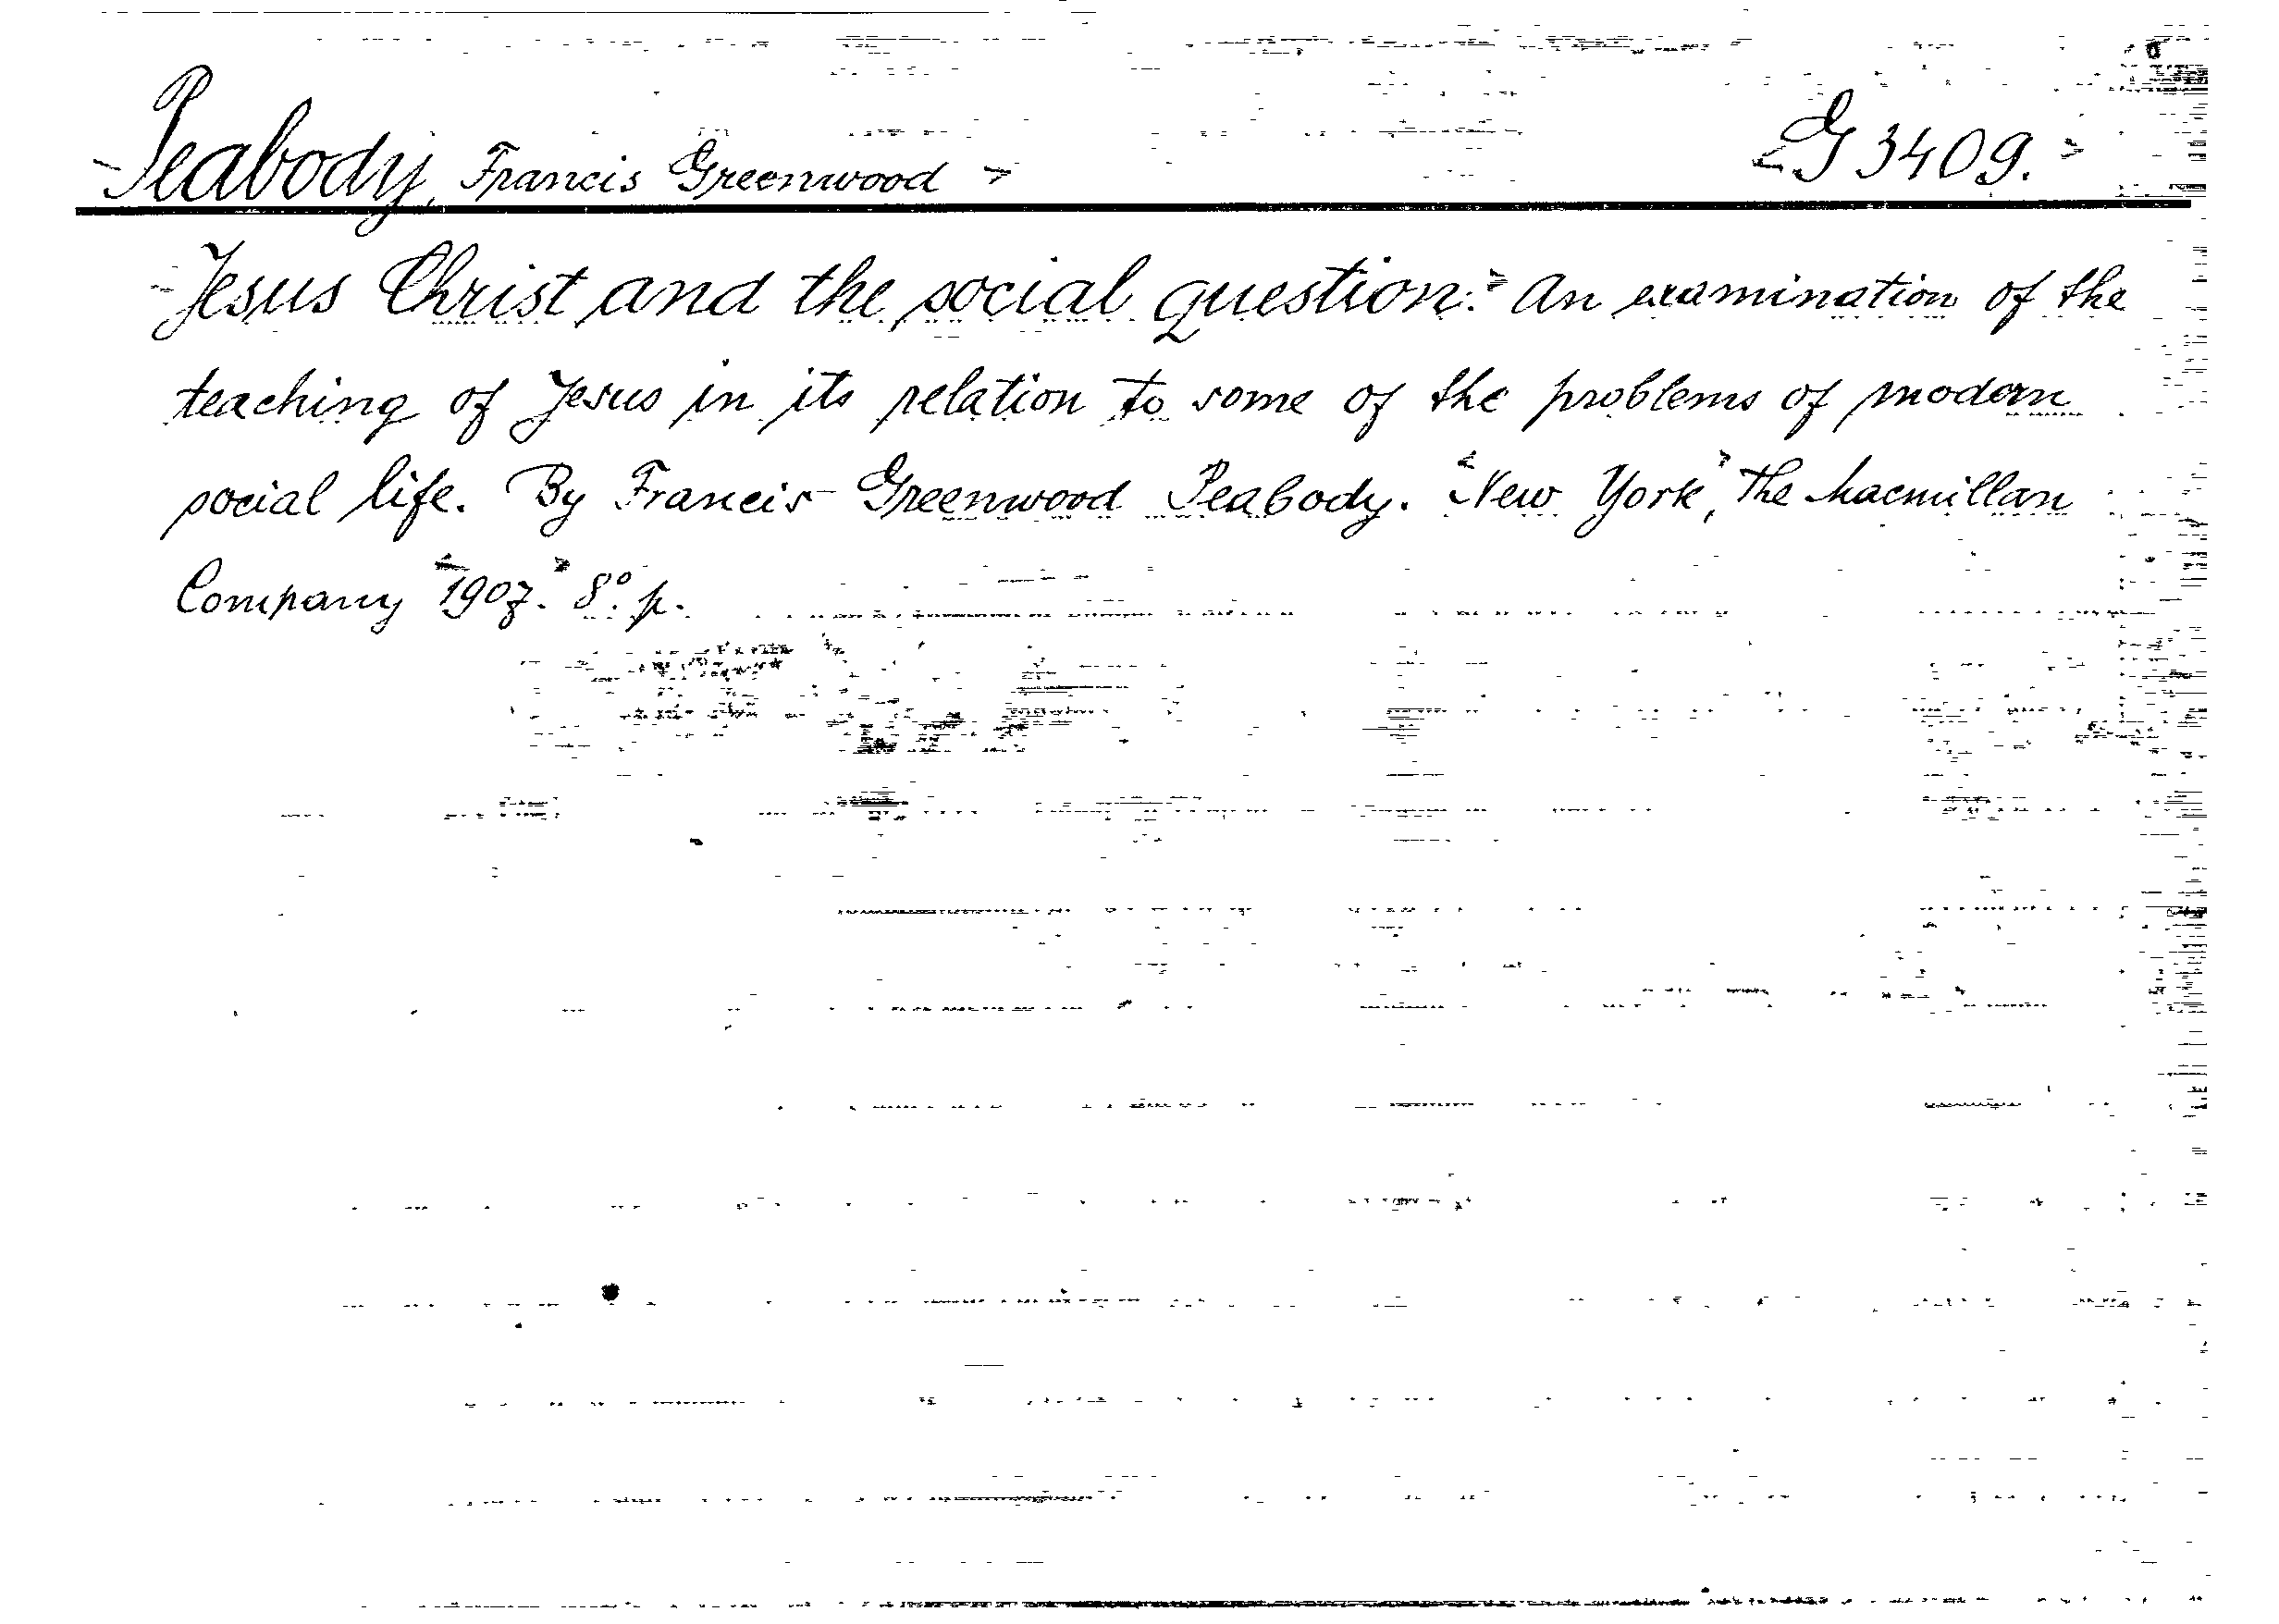 Peabody, Francis Greenwood G 3409.
Jesus Christ and the social question: An examination of the
teaching of Jesus in its relation to some of the problems of modern
social life. By Francis Greenwood Peabody. New York, The Macmillan
Company 1907. 8°. p.